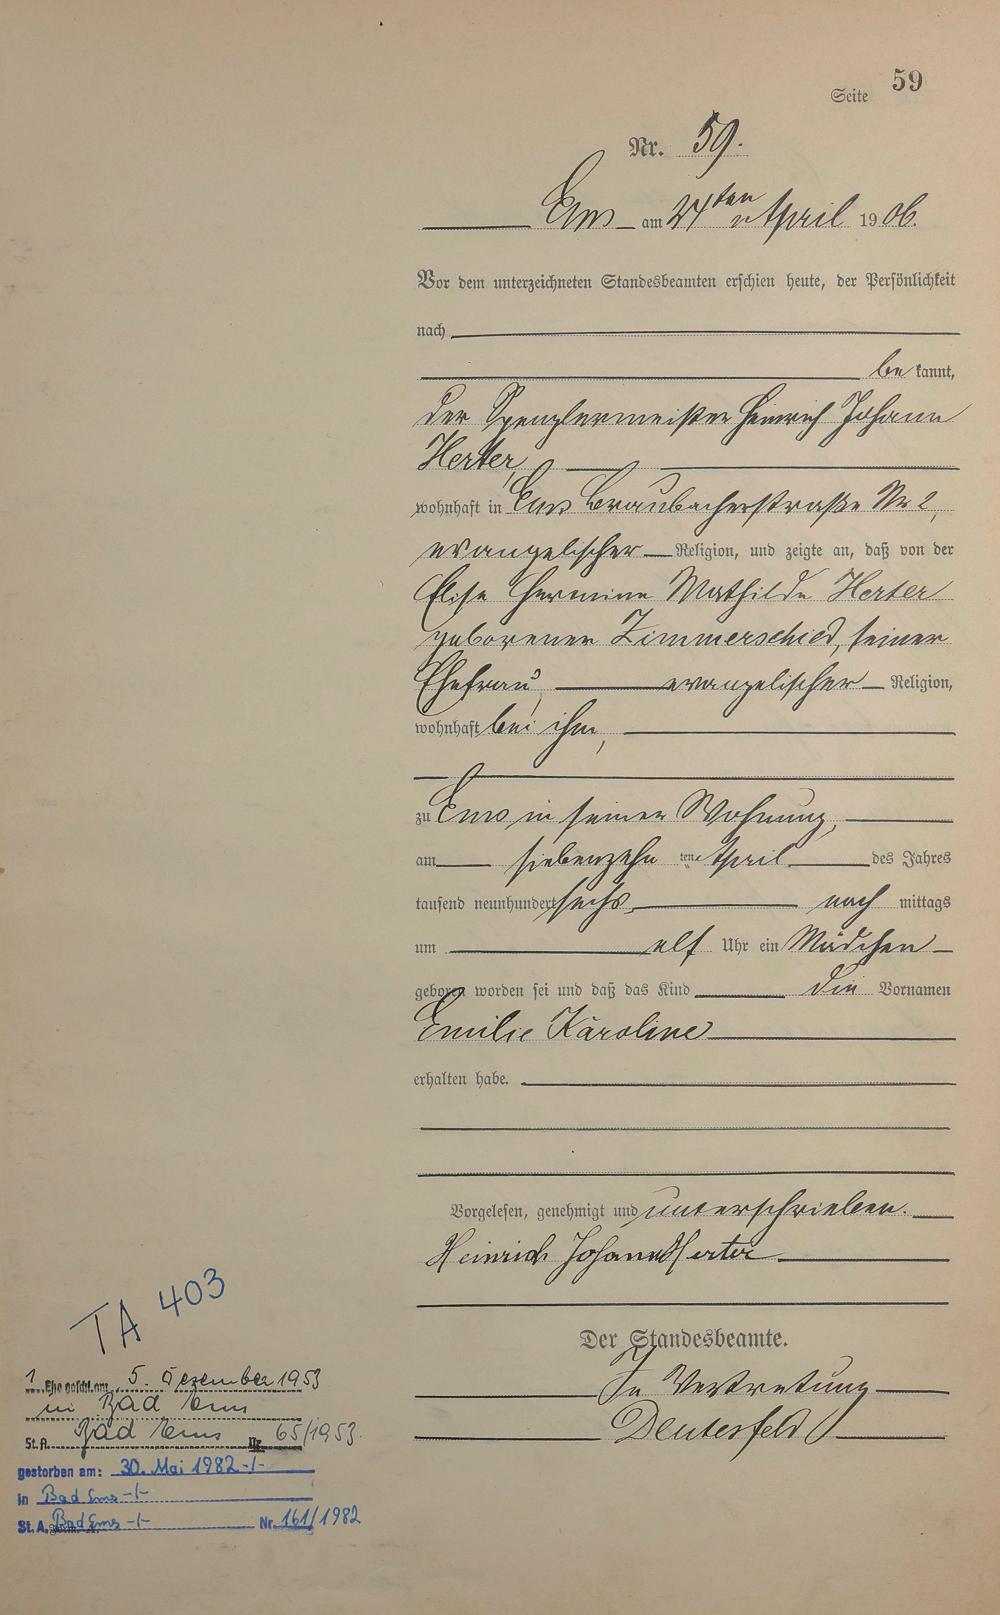 Seite 59
Nr. 59.
Ems am 24ten April 1906.
Vor dem unterzeichneten Standesbeamten erschien heute, der Persönlichkeit
nach
bekannt,
der Spenglermeister Heinrich Johann
Herter,
wohnhaft in Ems Braubacherstraße Nr 2,
evangelischer Religion, und zeigte an, daß von der
Elise Hermine Mathilde Herter
geborenen Zimmerschied, seiner
Ehefrau, evangelischer Religion,
wohnhaft bei ihm,
zu Ems in seiner Wohnung,
am siebenzehnten April des Jahres
tausend neunhundert sechs, nach mittags
um elf Uhr ein Mädchen
geboren worden sei und daß das Kind die Vornamen
Emilie Karoline
erhalten habe.
Vorgelesen, genehmigt und unterschrieben.
Heinrich Johann Herter
Der Standesbeamte.
In Vertretung
Deutesfeld
TA 403
1. Ehe geschl. am 5. Dezember 1953
in Bad Ems
St.A. Bad Ems Nr. 65/1953.
gestorben am: 30. Mai 1982 -/-
in Bad Ems -/-
St. A. Bad Ems -/- Nr. 161/1982